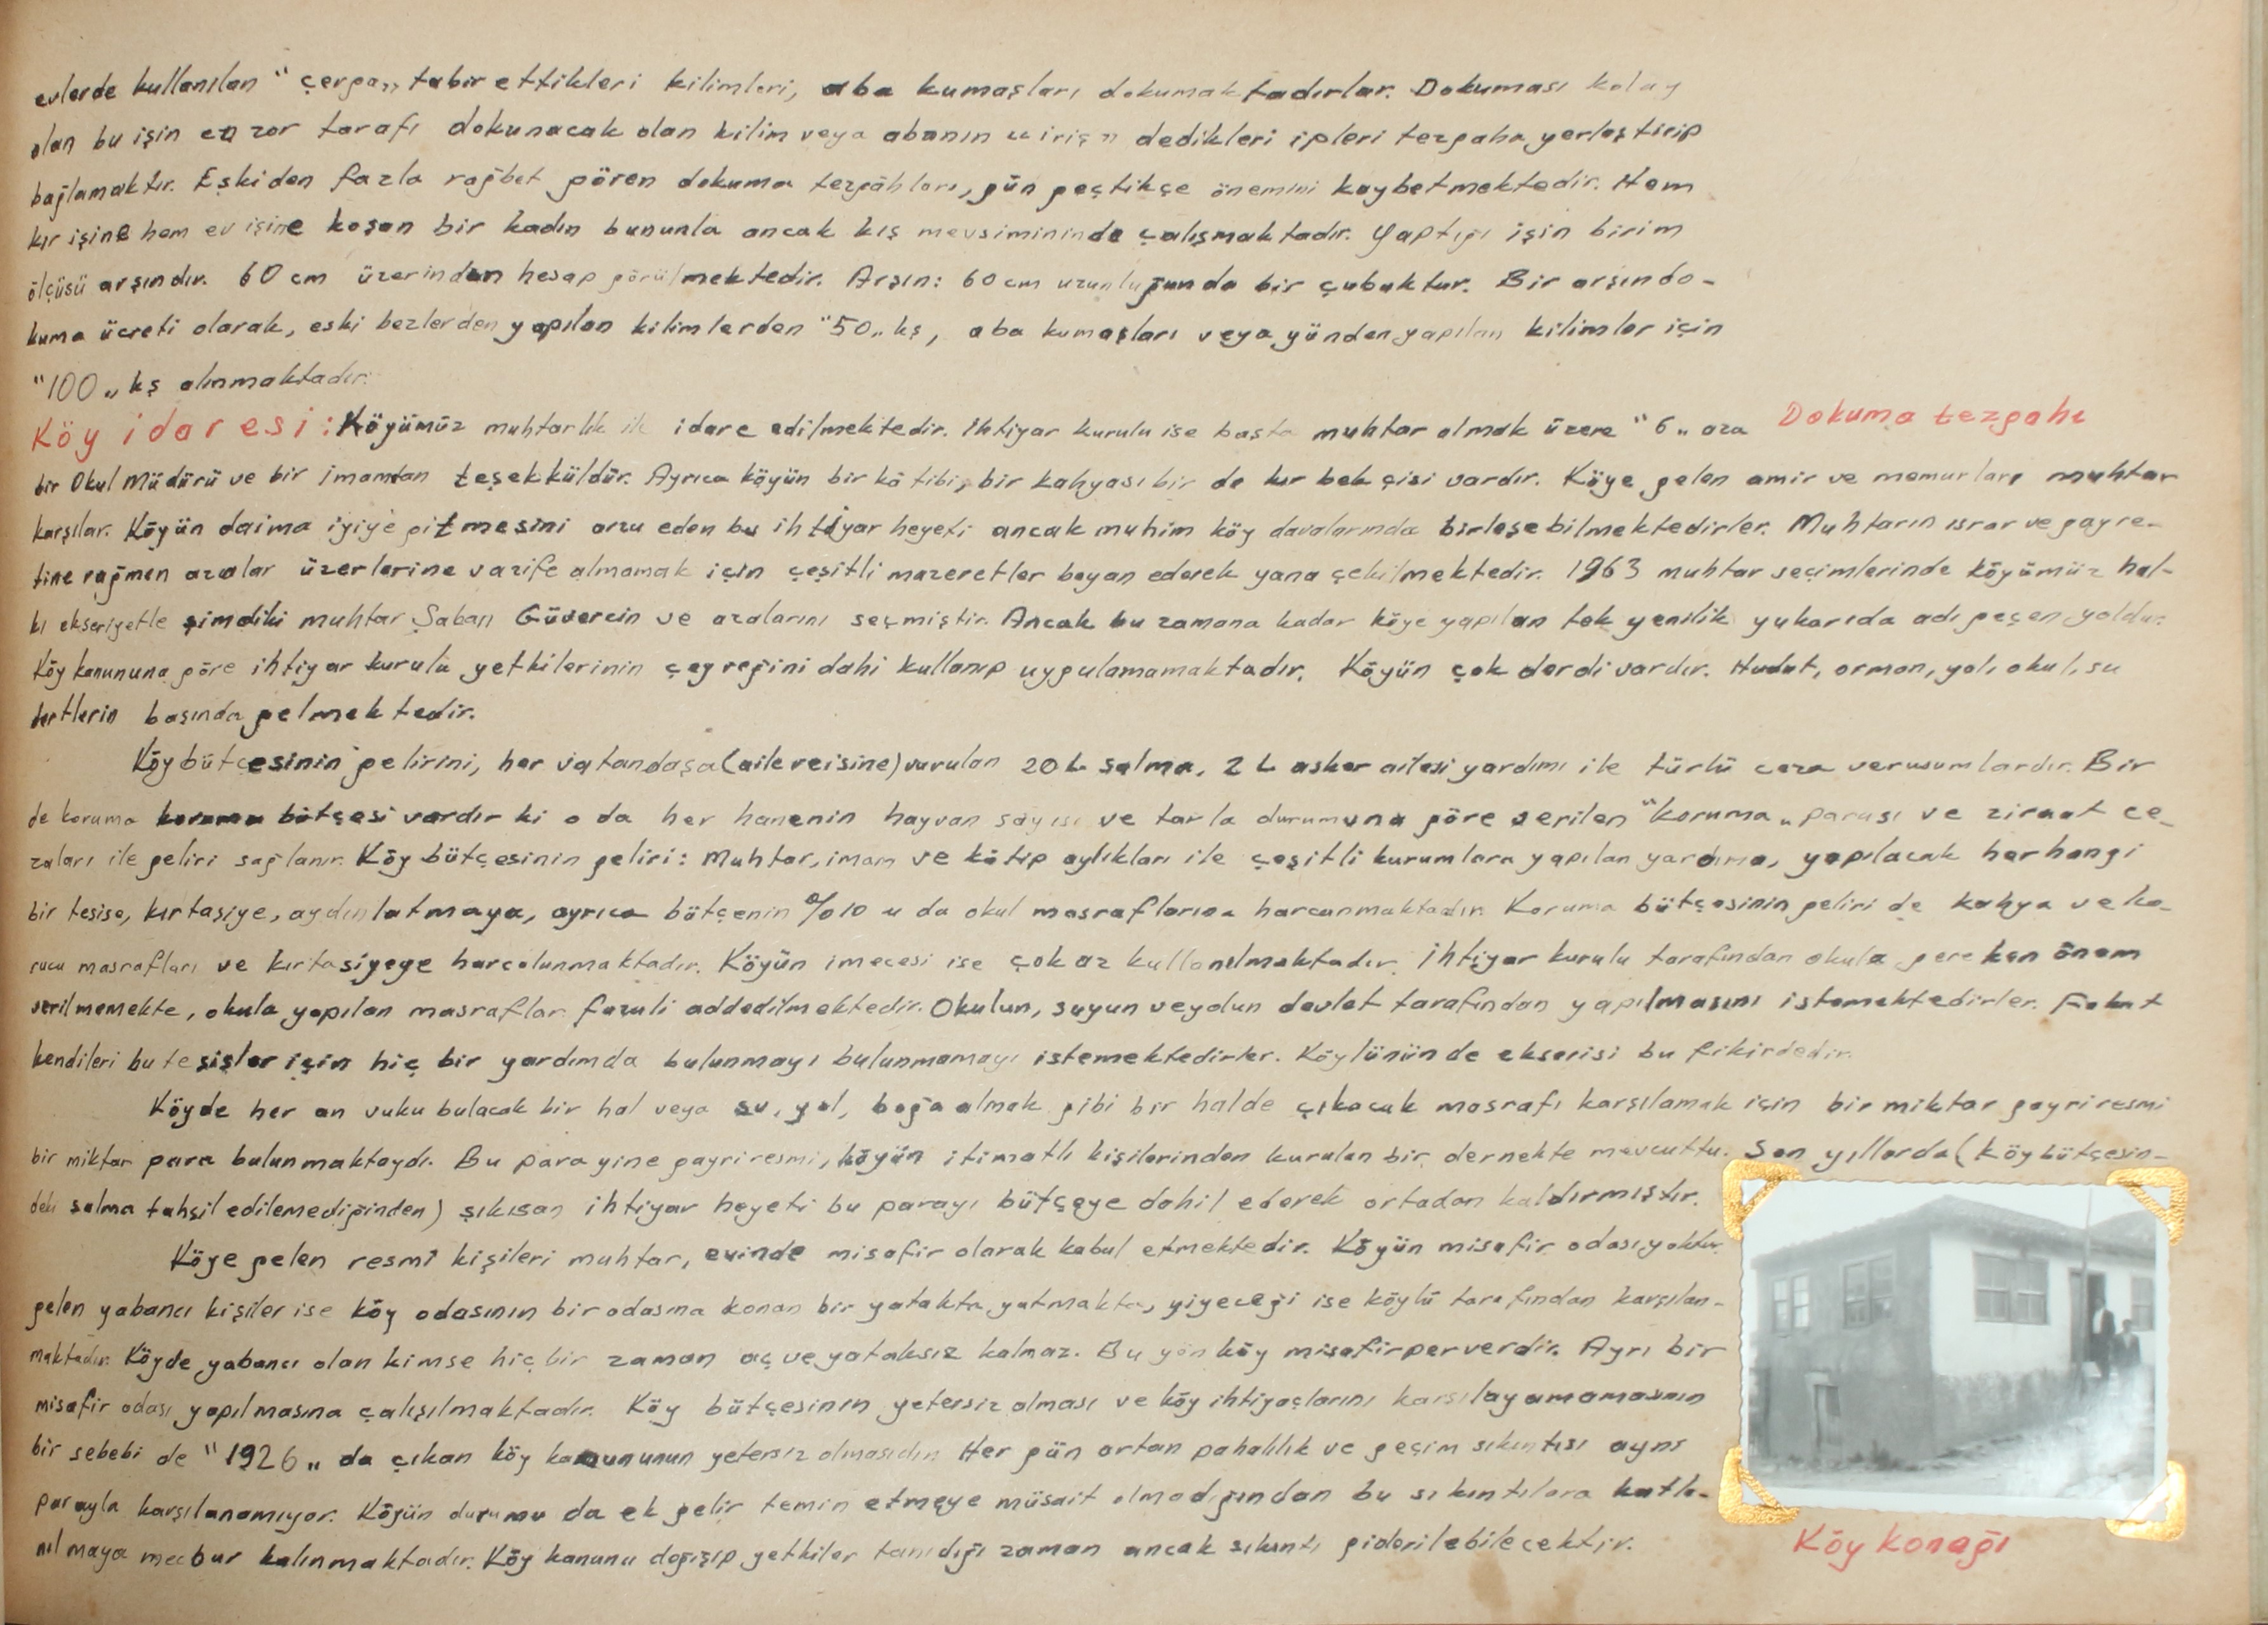 evlerde kullanılan "çerga„ tabir ettikleri kilimleri, aba kumaşları dokumaktadırlar. Dokuması kolay
olan bu işin en zor tarafı dokunacak olan kilim veya abanın "iriş" dedikleri ipleri tezgaha yerleştirip
bağlamaktır. Eskiden fazla rağbet gören dokuma tezgâhları, gün geçtikçe önemini kaybetmektedir. Hem
kır işine hem ev işine koşan bir kadın bununla ancak kış mevsimininde çalışmaktadır. Yaptığı işin birim
ölçüsü arşındır. 60 cm üzerinden hesap görülmektedir. Arşın: 60 cm uzunluğunda bir çubuktur. Bir arşın do-
kuma ücreti olarak, eski bezlerden yapılan kilimlerden "50„ kş, aba kumaşları veya yünden yapılan kilimler için
"100„ kş alınmaktadır.
Dokuma tezgahı
Köy idaresi: Köyümüz muhtarlık ile idare edilmektedir. İhtiyar kurulu ise başta muhtar olmak üzere "6„ aza
bir Okul Müdürü ve bir imamdan teşekküldür. Ayrıca köyün bir kâtibi, bir kahyası bir de kır bekçisi vardır. Köye gelen amir ve memurları muhtar
karşılar. Köyün daima iyiye gitmesini arzu eden bu ihtiyar heyeti ancak muhim köy davalarında birleşebilmektedirler. Muhtarın ısrar ve gayre-
tine rağmen azalar üzerlerine vazife almamak için çeşitli mazeretler beyan ederek yana çekilmektedir. 1963 muhtar seçimlerinde köyümüz hal-
kı ekseriyetle şimdiki muhtar Şaban Güvercin ve azalarını seçmiştir. Ancak bu zamana kadar köye yapılan tek yenilik yukarıda adı geçen yoldur.
Köy kanununa göre ihtiyar kurulu yetkilerinin çeyreğini dahi kullanıp uygulamamaktadır. Köyün çok derdi vardır. Hudut, orman, yol, okul, su
dertlerin başında gelmektedir.
Köy bütçesinin gelirini, her vatandaşa (aile reisine) vurulan 20 L salma, 2 L asker ailesi yardımı ile türlü ceza ve rusumlardır. Bir
de koruma bütçesi vardır ki o da her hanenin hayvan sayısı ve tarla durumuna göre verilen "koruma„ parası ve ziraat ce-
zaları ile geliri sağlanır. Köy bütçesinin geliri: Muhtar, imam ve kâtip aylıkları ile çeşitli kurumlara yapılan yardıma, yapılacak herhangi
bir tesise, kırtasiye, aydınlatmaya, ayrıca bütçenin %10 u da okul masraflarına harcanmaktadır. Koruma bütçesinin geliri de kahya ve ko-
rucu masrafları ve kırtasiyeye harcalunmaktadır. Köyün imecesi ise çok az kullanılmaktadır. İhtiyar kurulu tarafından okula gereken önem
verilmemekte, okula yapılan masraflar fuzuli addedilmektedir. Okulun, suyun ve yolun devlet tarafından yapılmasını istemektedirler. Fakat
kendileri bu tesisler için hiç bir yardımda bulunmayı bulunmamayı istemektedirler. Köylünün de ekserisi bu fikirdedir.
Köyde her an vuku bulacak bir hal veya su, yol, boğa almak gibi bir halde çıkacak masrafı karşılamak için bir miktar gayri resmi
bir miktar para bulunmaktaydı. Bu para yine gayri resmi, köyün itimatlı kişilerinden kurulan bir dernekte mevcuttu. Son yıllarda (köy bütçesin-
deki salma tahsil edilemediğinden) sıkışan ihtiyar heyeti bu parayı bütçeye dahil ederek ortadan kaldırmıştır.
Köye gelen resmî kişileri muhtar, evinde misafir olarak kabul etmektedir. Köyün misafir odası yoktur.
gelen yabancı kişiler ise köy odasının bir odasına konan bir yatakta yatmakta, yiyeceği ise köylü tarafından karşılan-
maktadır. Köyde yabancı olan kimse hiç bir zaman aç ve yataksız kalmaz. Bu yön köy misafirperverdir. Ayrı bir
misafir odası yapılmasına çalışılmaktadır. Köy bütçesinin yetersiz olması ve köy ihtiyaçlarını karşılayamamasının
bir sebebi de "1926„ da çıkan köy kanununun yetersiz olmasıdır. Her gün artan pahalılık ve geçim sıkıntısı aynı
parayla karşılanamıyor. Köyün durumu da ek gelir temin etmeye müsait olmadığından bu sıkıntılara katla-
nılmaya mecbur kalınmaktadır. Köy kanunu değişip yetkiler tanıdığı zaman ancak sıkıntı giderilebilecektir.
Köy konağı